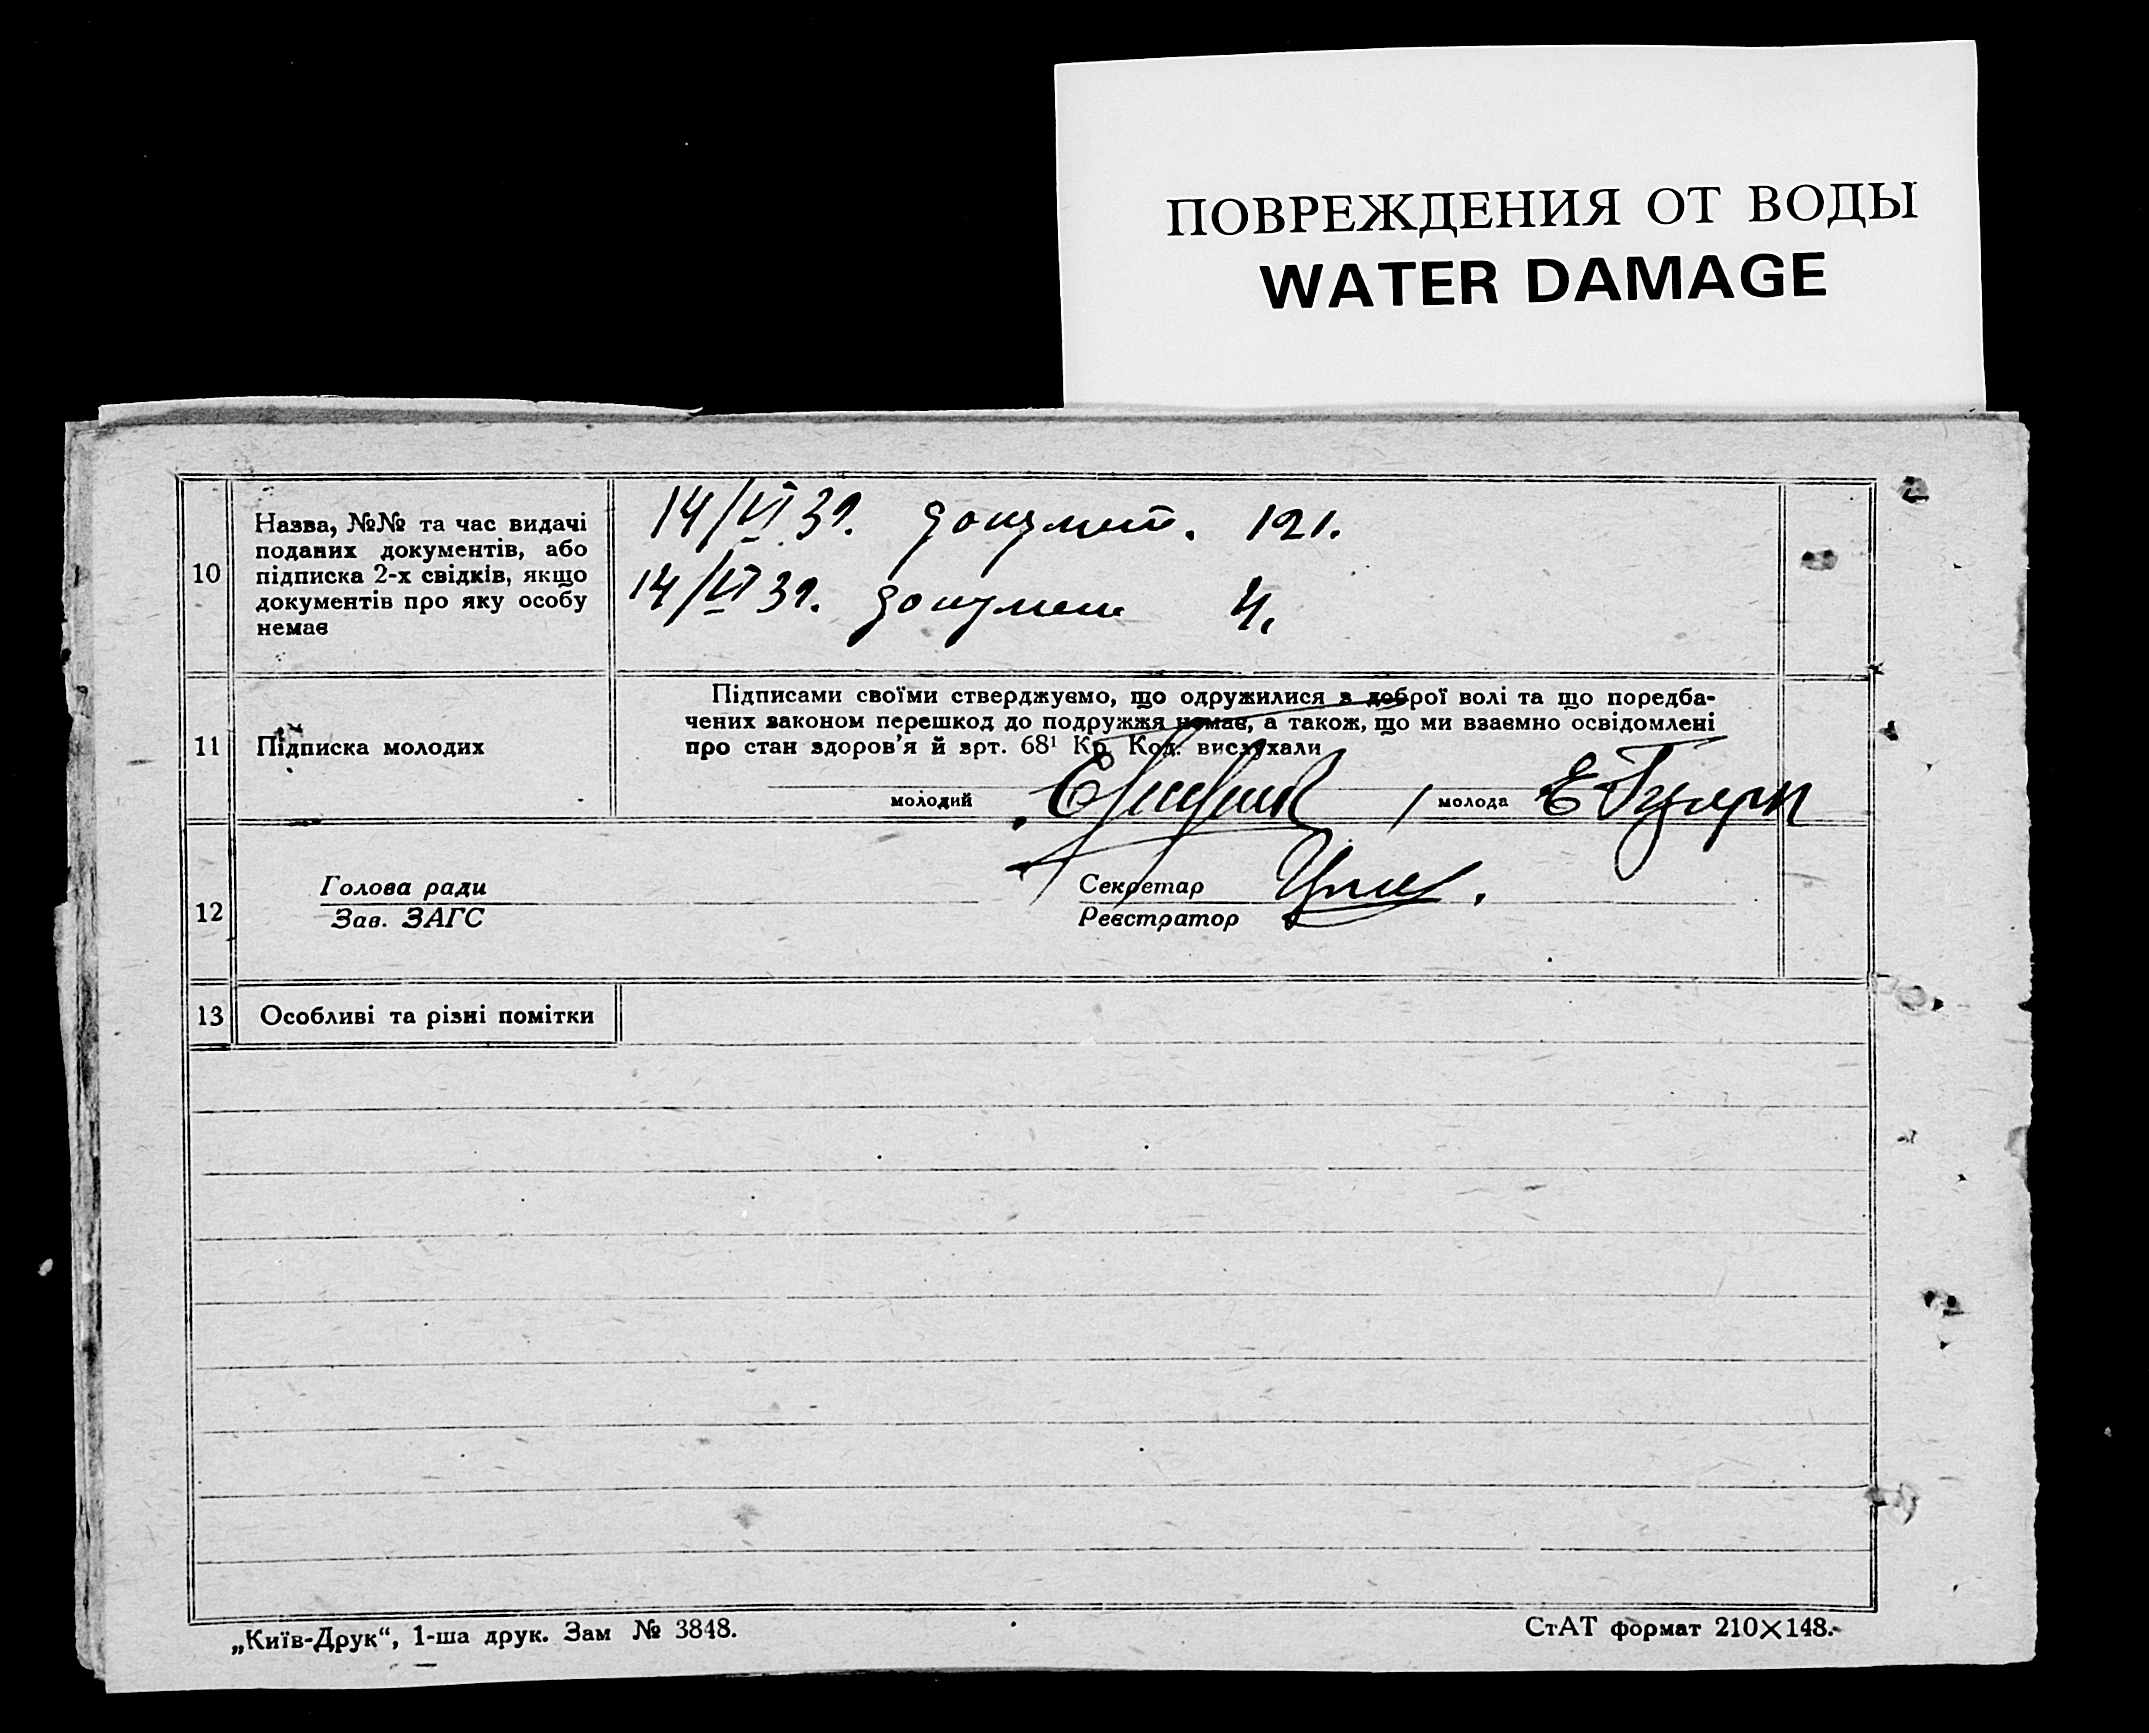 ПОВРЕЖДЕНИЯ ОТ ВОДЫ
WATER DAMAGE
10
Назва, №№ та час видачі
поданих документів, або
підписка 2-х свідків, якщо
документів про яку особу
немає
14/VI 31. документ. 121.
14/VI 31. докумен 4.
11
Підписка молодих
Підписами своїми стверджуємо, що одружилися з доброї волі та що поредба-
чених законом перешкод до подружжя немає, а також, що ми взаємно освідомлені
про стан здоров'я й арт. 68¹ Кр. Код. вислухали
молодий
молода
12
Голова ради
Зав. ЗАГС
Секретар
Реєстратор
13
Особливі та різні помітки
„Київ-Друк“, 1-ша друк. Зам № 3848.
СтАТ формат 210×148.